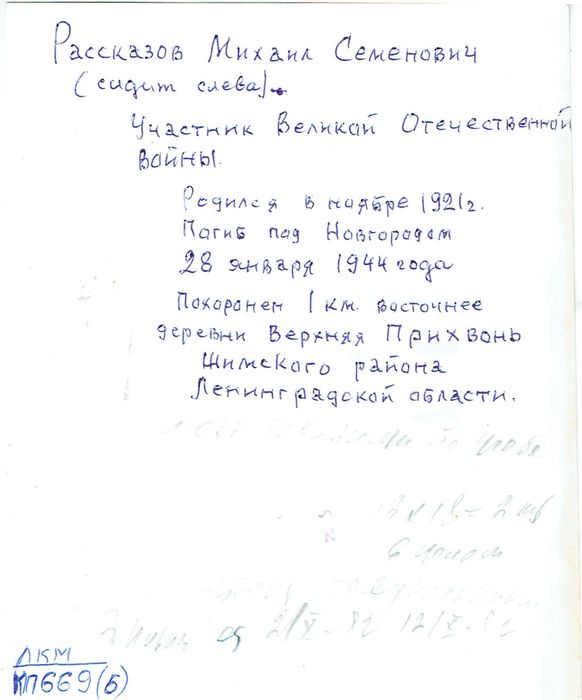 Рассказов Михаил Семенович
(сидит слева).
Участник Великой Отечественной
войны.
Родился в ноябре 1921г.
Погиб под Новгородом
28 января 1944 года
Похоронен 1 км. восточнее
деревни Верхняя Прихвонь
Шимского района
Ленинградской области.
13 x 18 = 2
6
21/X - 82 12/X - 82
ЛКМ
КП669(Б)